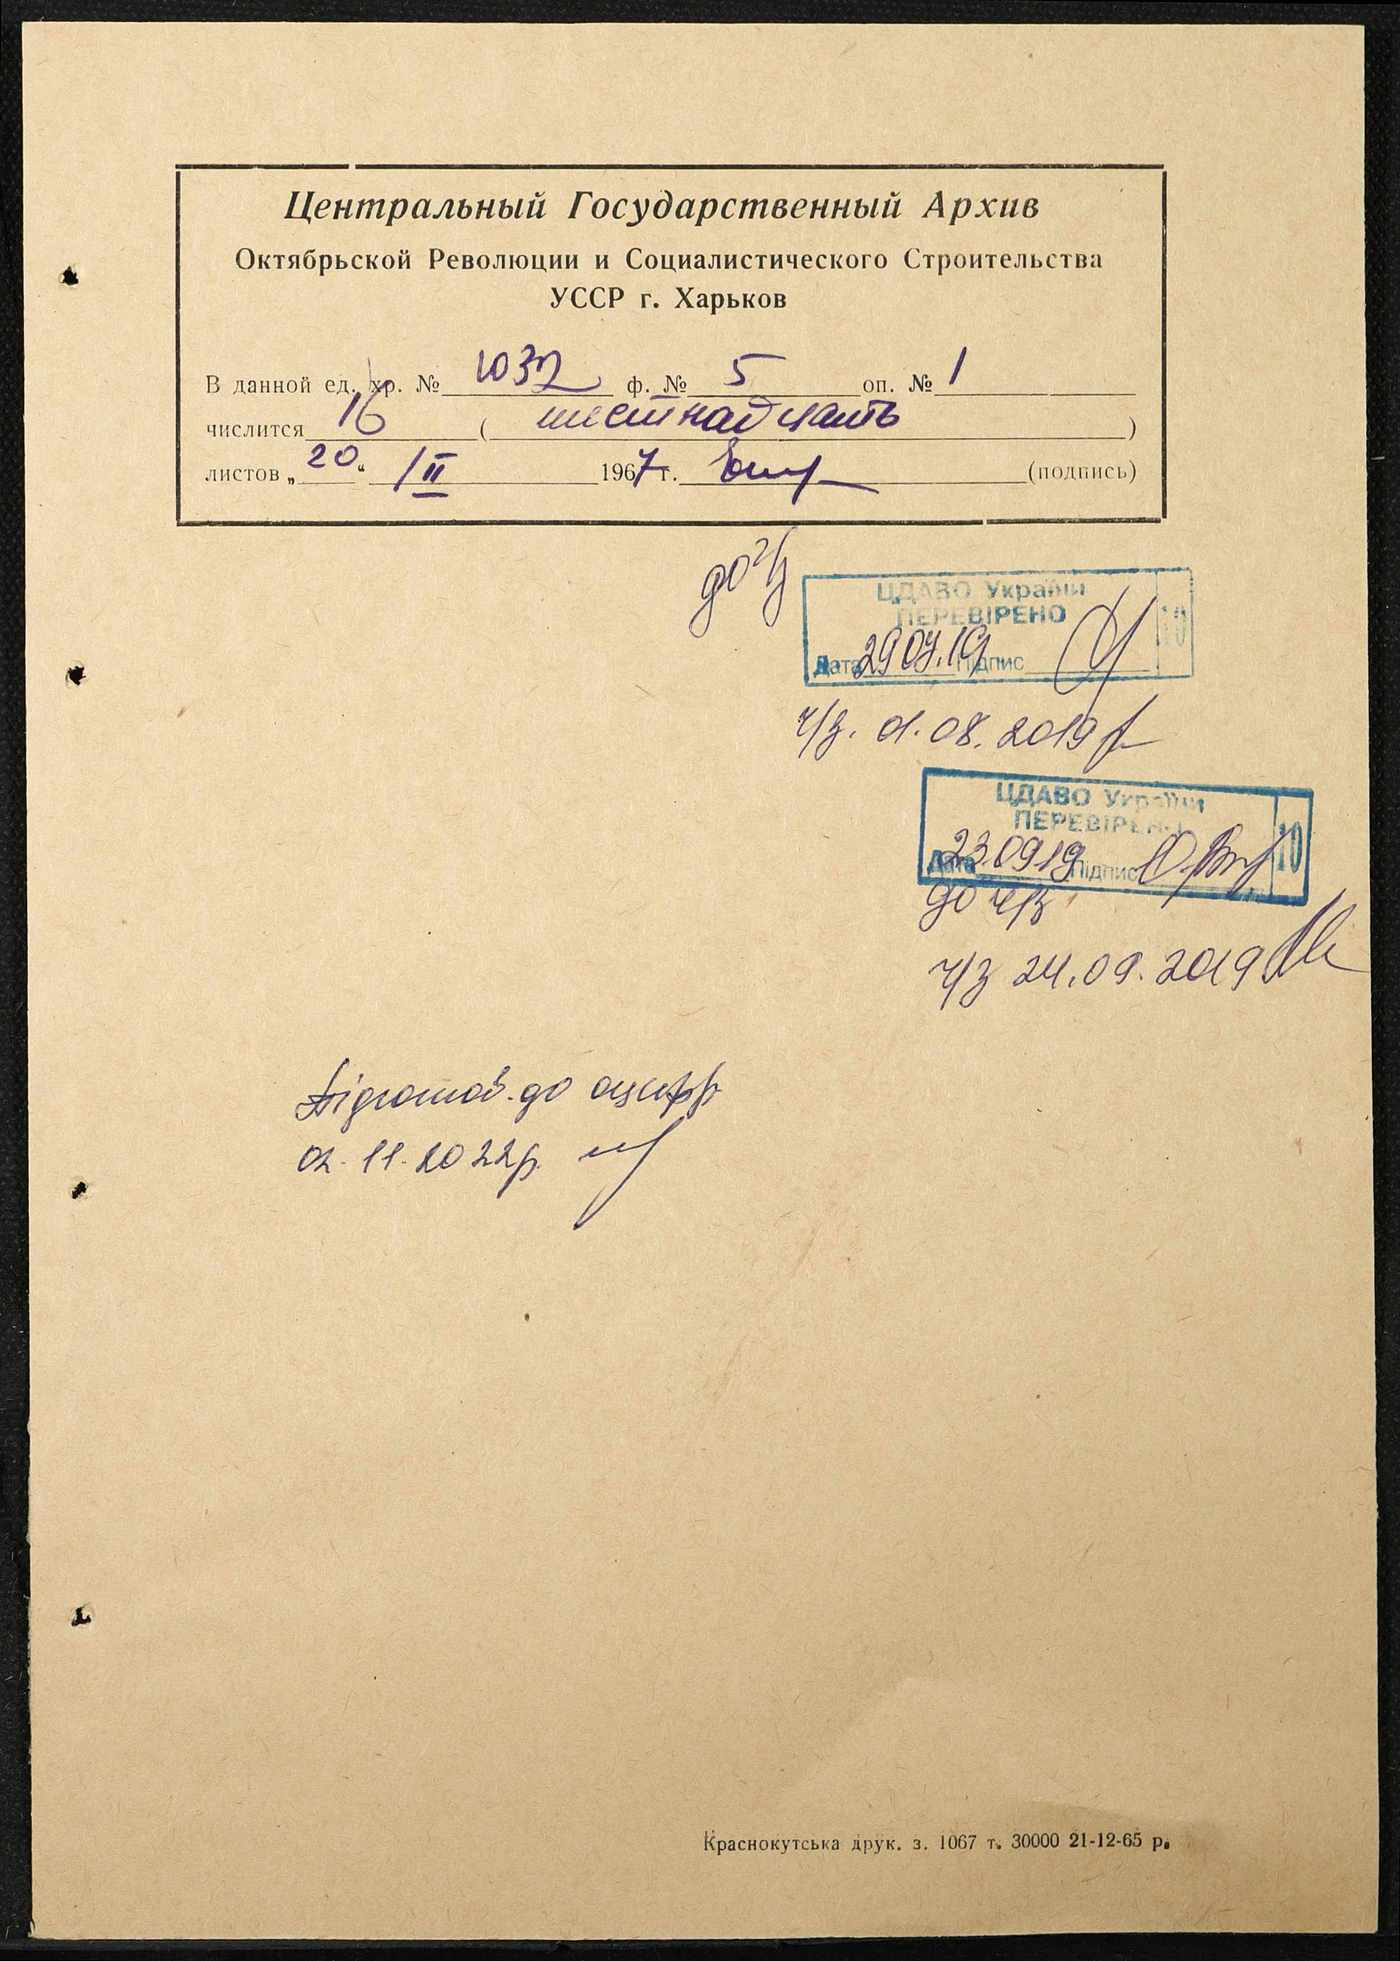 Центральный Государственный Архив
Октябрьской Революции и Социалистического Строительства
УССР г. Харьков
В данной ед. хр. № 1032 ф. № 5 оп. № 1
числится 16 ( шестнадцать )
листов „ 20 “ II 1967 г. (подпись)
до ч/з
ЦДАВО України
ПЕРЕВІРЕНО 10
Дата 29.07.19 Підпис
ч/з. 01.08.2019
ЦДАВО України
ПЕРЕВІРЕНО 10
Дата 23.09.19 Підпис
до ч/з
ч/з 24.09.2019
Підготов. до оцифр.
02.11.2022р.
Краснокутська друк. з. 1067 т. 30000 21-12-65 р.